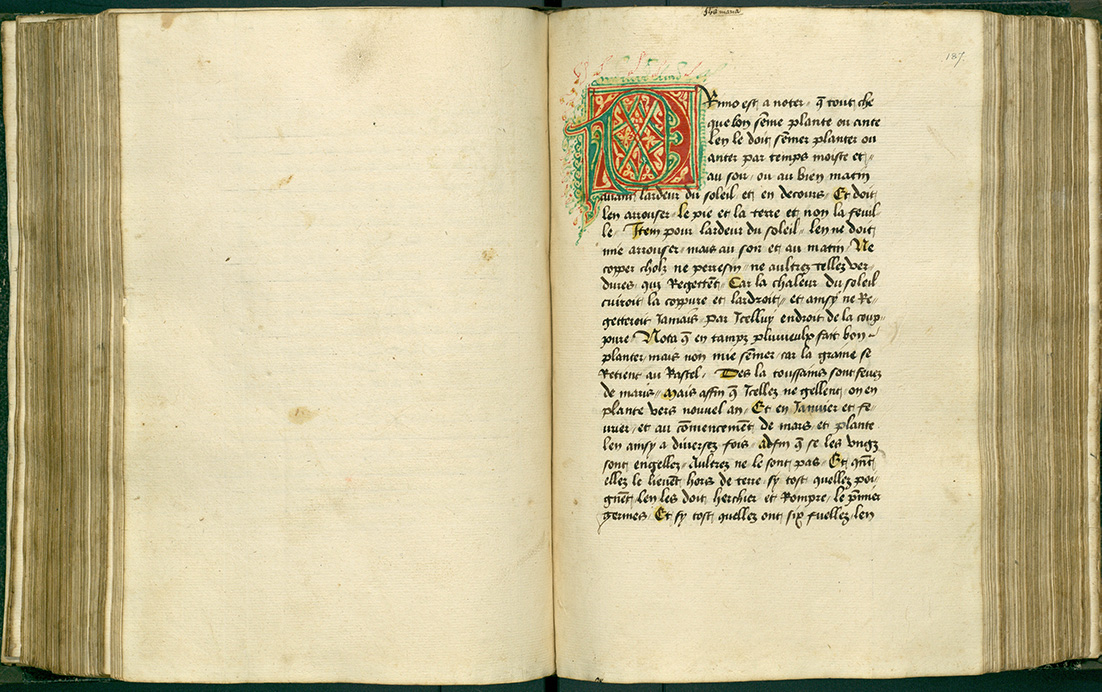 187
Primo est a noter q̄ tout che
que bon sēme plante ou ante
len le doit sēmer planter ou
anter par temps moiste et
au soir ou au bien matin
auant lardeur du soleil et en decours Et doit
len arrouser le pie et la terre et non la feuil
le Item pour lardeur du soleil len ne doit
mie arrouser mais au soir et au matin Ne
copper cholz ne perresin ne aultrez tellez ver
dures quj Regettēt Car la chaleur du soleil
cuiroit la coppure et lardroit et ainsy ne Re
getteroit Jamais par Jcelluy endroit de la coup
pure Nota q̄ en tampz pluuieulx fait bon
planter mais non mie sēmer car la graine se
Retient au Rastel Des la toussains sont feuez
de maris Mais affin q̄ Jcellez ne gellent on en
plante vers nouvel an Et en Januier et fe
urier et au cōmencemēt de mars et plante
len ainsy a diuersez fois adfin q̄ se les vngz
sont engellez Aultrez ne le sont pas Et qn̄t
ellez se lieuēt hors de terre sy tost quellez poi
gnēt len les doit herchier et Rompre le p̄mier
germes Et sy tost quellez ont six fuellez len